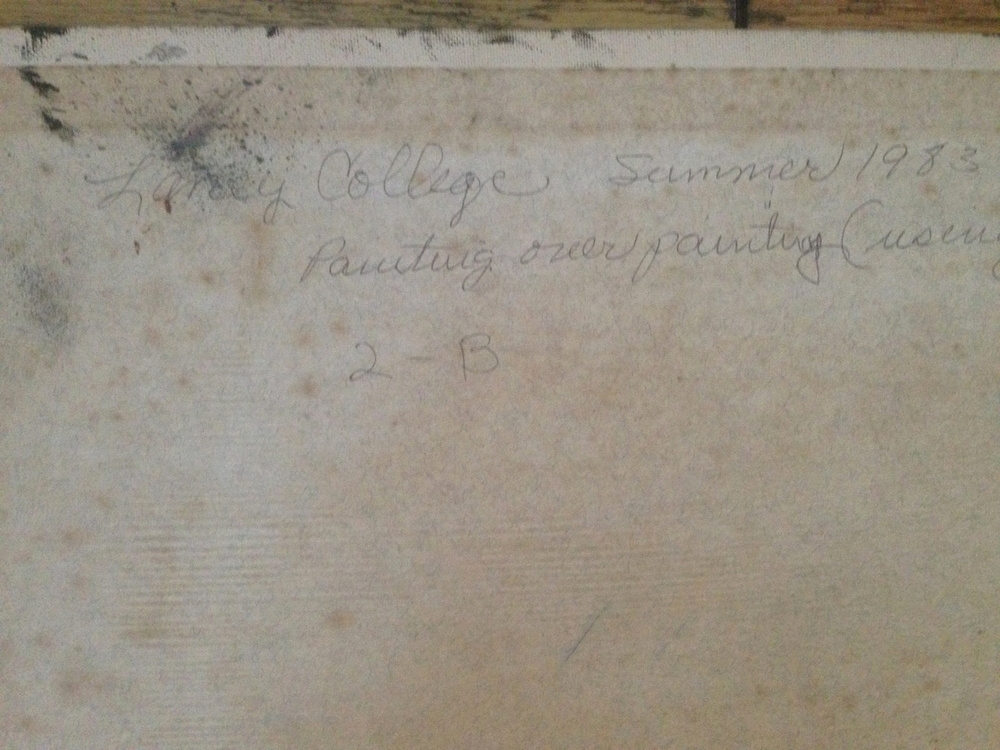 Laney College Summer 1983
Painting over painting (using
2 - B